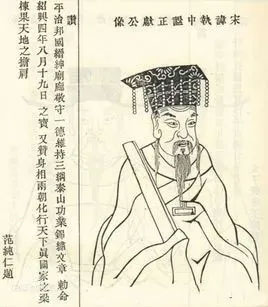 宋諱執中諡正獻公像
讚
平治邦國縉紳廟廊敬守一德維持三綱泰山功業錦繡文章 勅命
紹興四年八月十九日 之寶 又贊身相兩朝化行天下眞國家之梁
棟果天地之擔肩 范純仁題